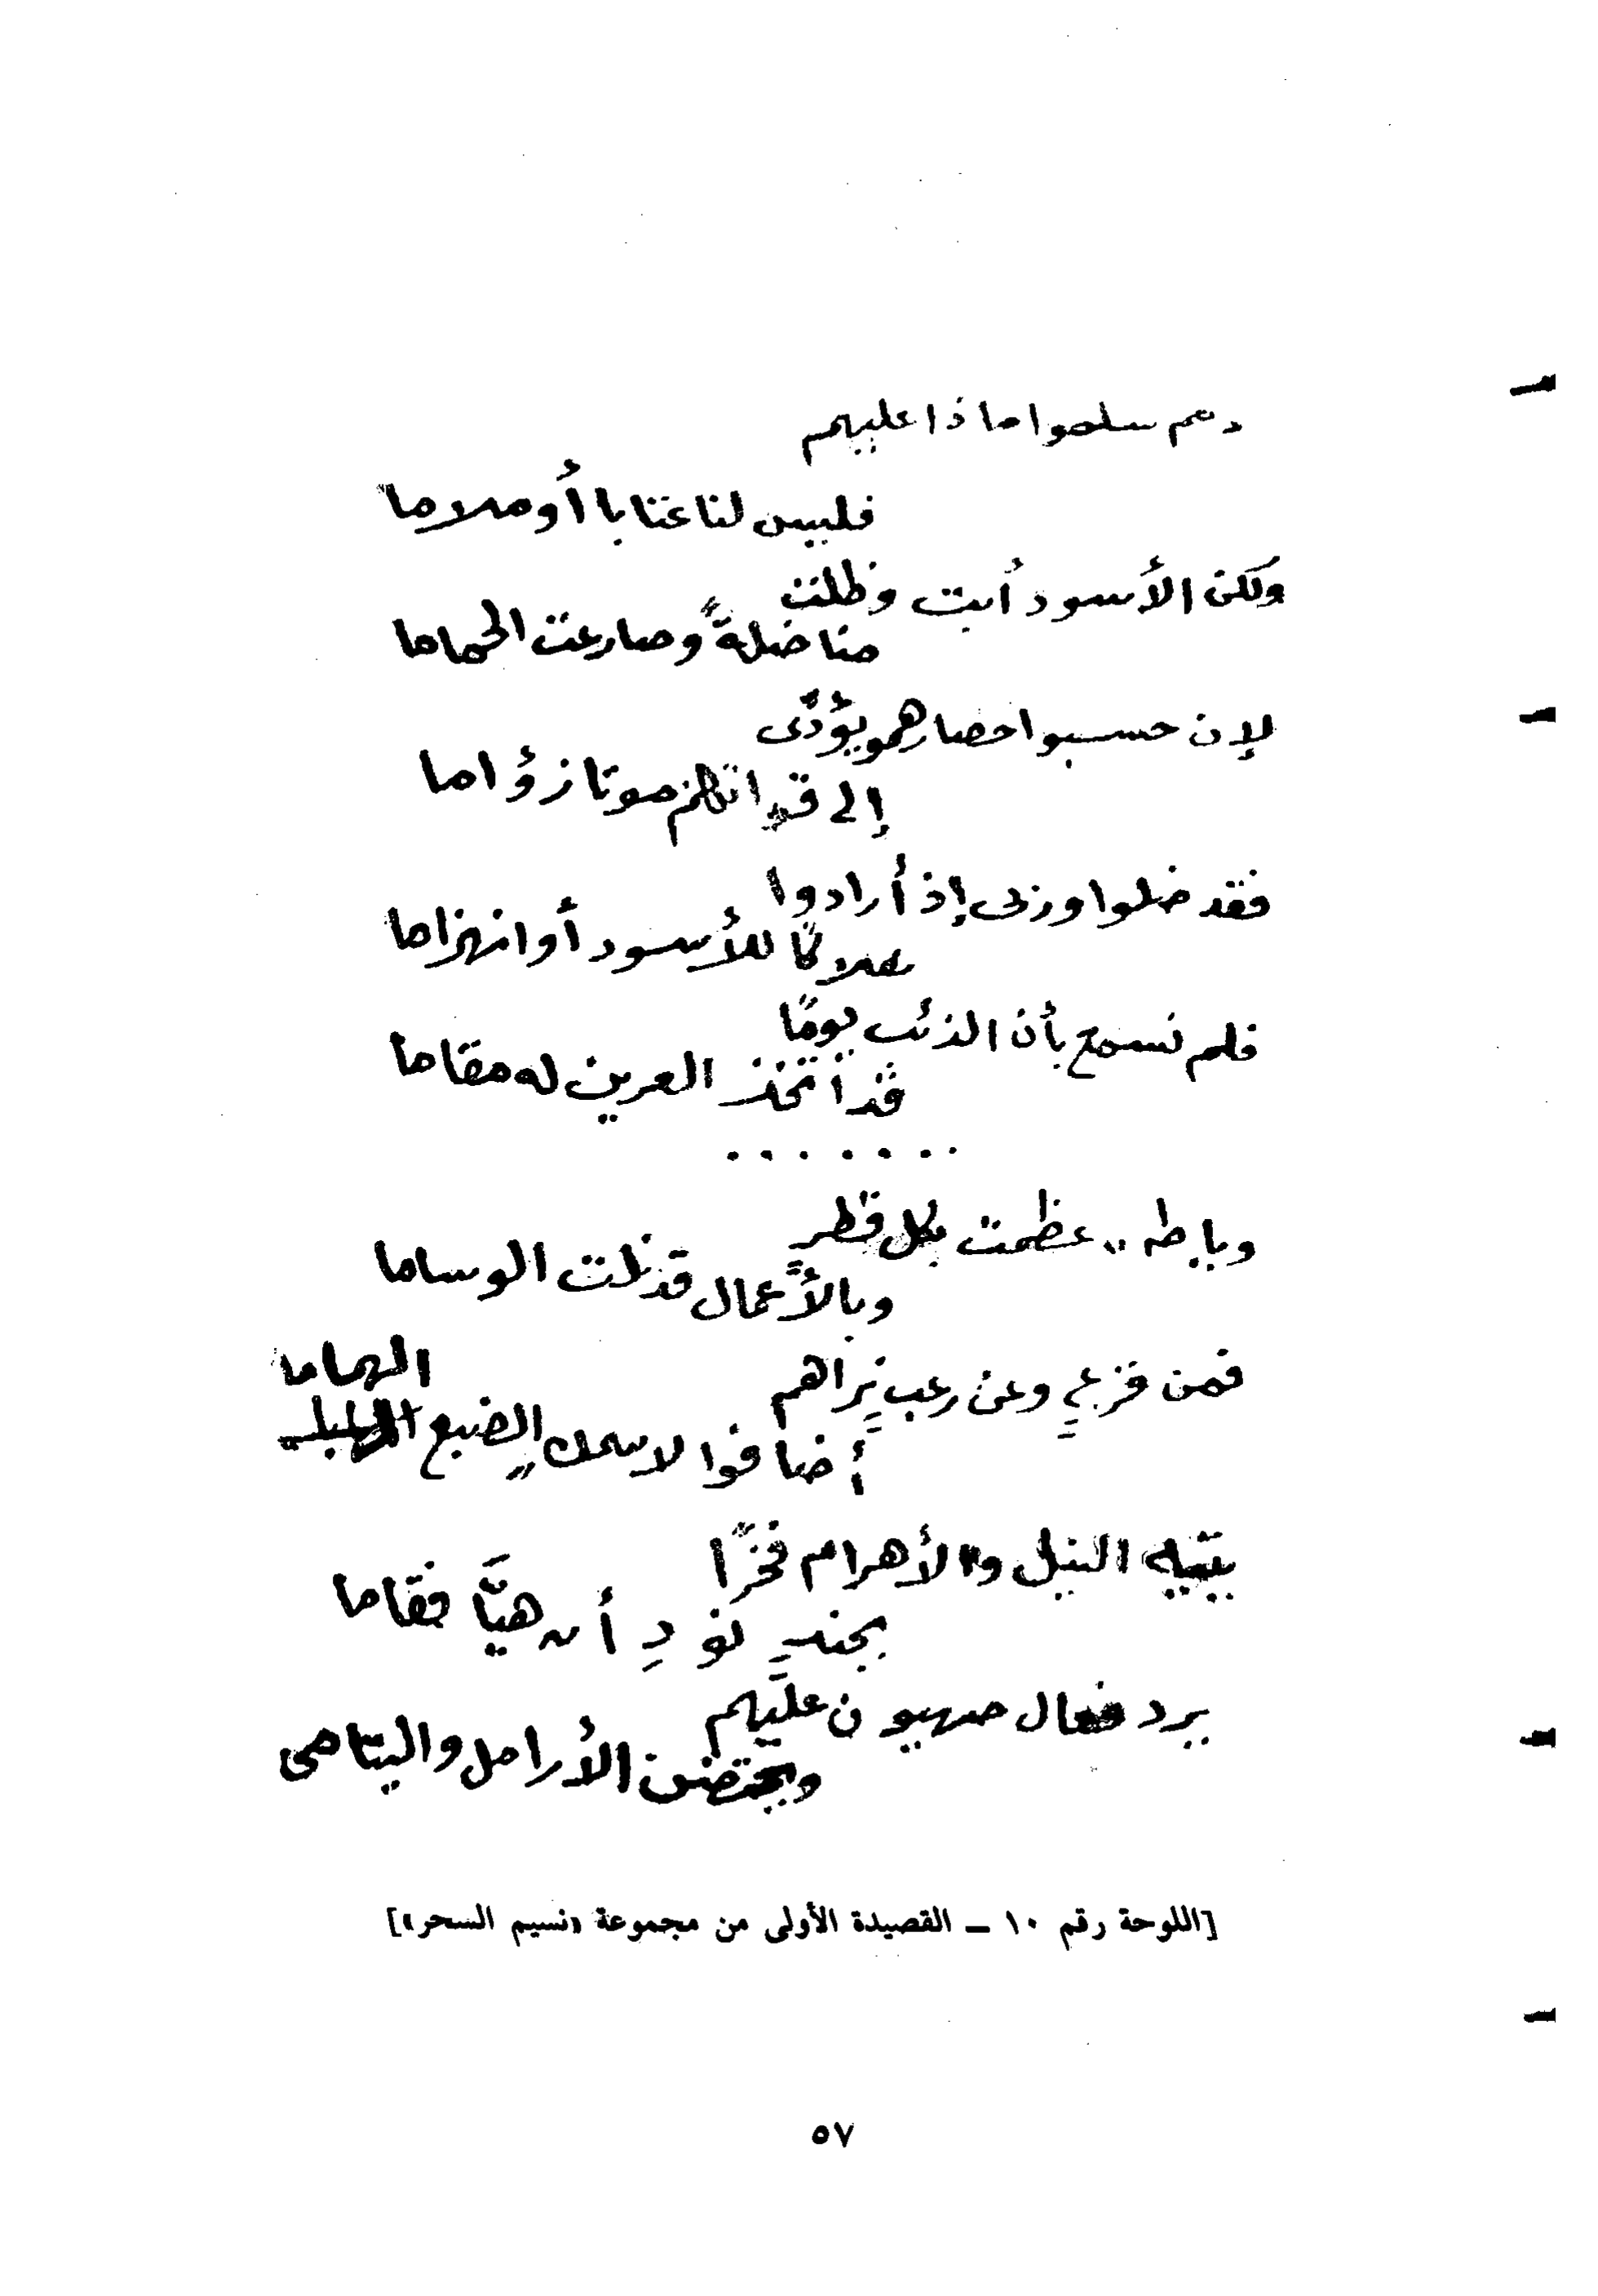 سلموا ماذا عليهم
فليس لنا عتابا أو ملاما
ولكن الأسود أبت وظلت
مناضلةً وصارعت الحماما
لإن حسبوا حصارهمو يؤدى
إلى قد انهزم موتا زؤاما
فقد ضلوا وربى إذ أرادوا
هلاكا للأسود أو انهزاما
فلم نسمع بأن الذئب يومًا
قد اتخذ العرين له مقاما
. . . . . . .
وبا طه .. عظمت بكل قطرٍ
وبالأعمال قد نلت الوساما
فمن فزعٍ وعن رعب نراهم
الهماما
أضافوا لاسمك الضبع
يتيه النيل والأهرام فخرًا
بجندٍ ذودِ أن هيَّا فقاما
يرد فعال صهيون عليهم
ويحتضن الأرامل واليتامى
[اللوحة رقم ١٠ – القصيدة الأولى من مجموعة «نسيم السحر»]
٥٧